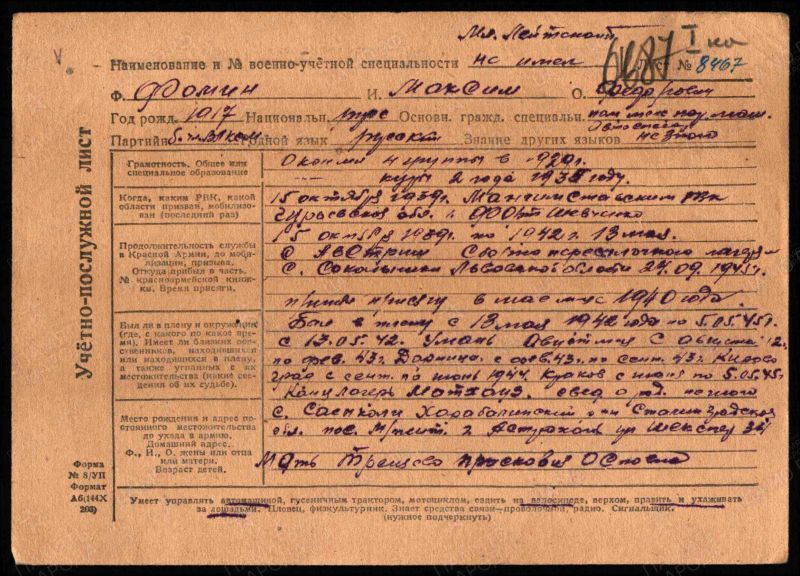 Мл. Лейтенант
Наименование и № военно-учётной специальности не имел Лист № 8467
Ф. Фомин И. Максим О. Федорович
Год рожд. 1917 Национальн. рус Основн. гражд. специальн. пом мех
Партийн. б. чл ВЛКСМ Родной язык русский Знание других языков не знаю
Учётно-послужной лист
Грамотность. Общее или специальное образование
Окончил 4 группы в 1930г.
курсы 2 года 1935 году.
Когда, каким РВК, какой области призван, мобилизован (последний раз)
15 октября 1939г. РВК
Гурьевской обл. г. Форт Шевченко
Продолжительность службы в Красной Армии, до мобилизации, призыва. Откуда прибыл в часть. № красноармейской книжки. Время присяги.
15 октября 1939г. по 1942г. 13 мая.
С Австрии лагеря
с. Львовской области 24.09.1945г.
принял присягу в мае м-це 1940 года.
Был ли в плену и окружении (где, с какого по какое время). Имеет ли близких родственников, находившихся или находящихся в плену, а также угнанных с их местожительства (какие сведения об их судьбе).
Был в плену с 13 мая 1942 года по 5.05.45г.
с 13.05.42. Умань с августа 42.
по фев. 43г. Дарница с фев. 43г. по сент. 43г. Кировоград
с сент. по июнь 1944 Краков с июня по 5.05.45г
лагерь
Место рождения и адрес постоянного местожительства до ухода в армию. Домашний адрес. Ф., И., О. жены или отца или матери. Возраст детей.
с. Сасыколи Харабалинский р-н Сталинградская
обл. г. Астрахань ул
Мать Просковия
Форма № 8/УП Формат А6(144Х203)
Умеет управлять автомашиной, гусеничным трактором, мотоциклом, ездить на велосипеде, верхом, править и ухаживать
за лошадьми. Пловец, физкультурник. Знает средства связи—проволочной, радио. Сигнальщик.
(нужное подчеркнуть)